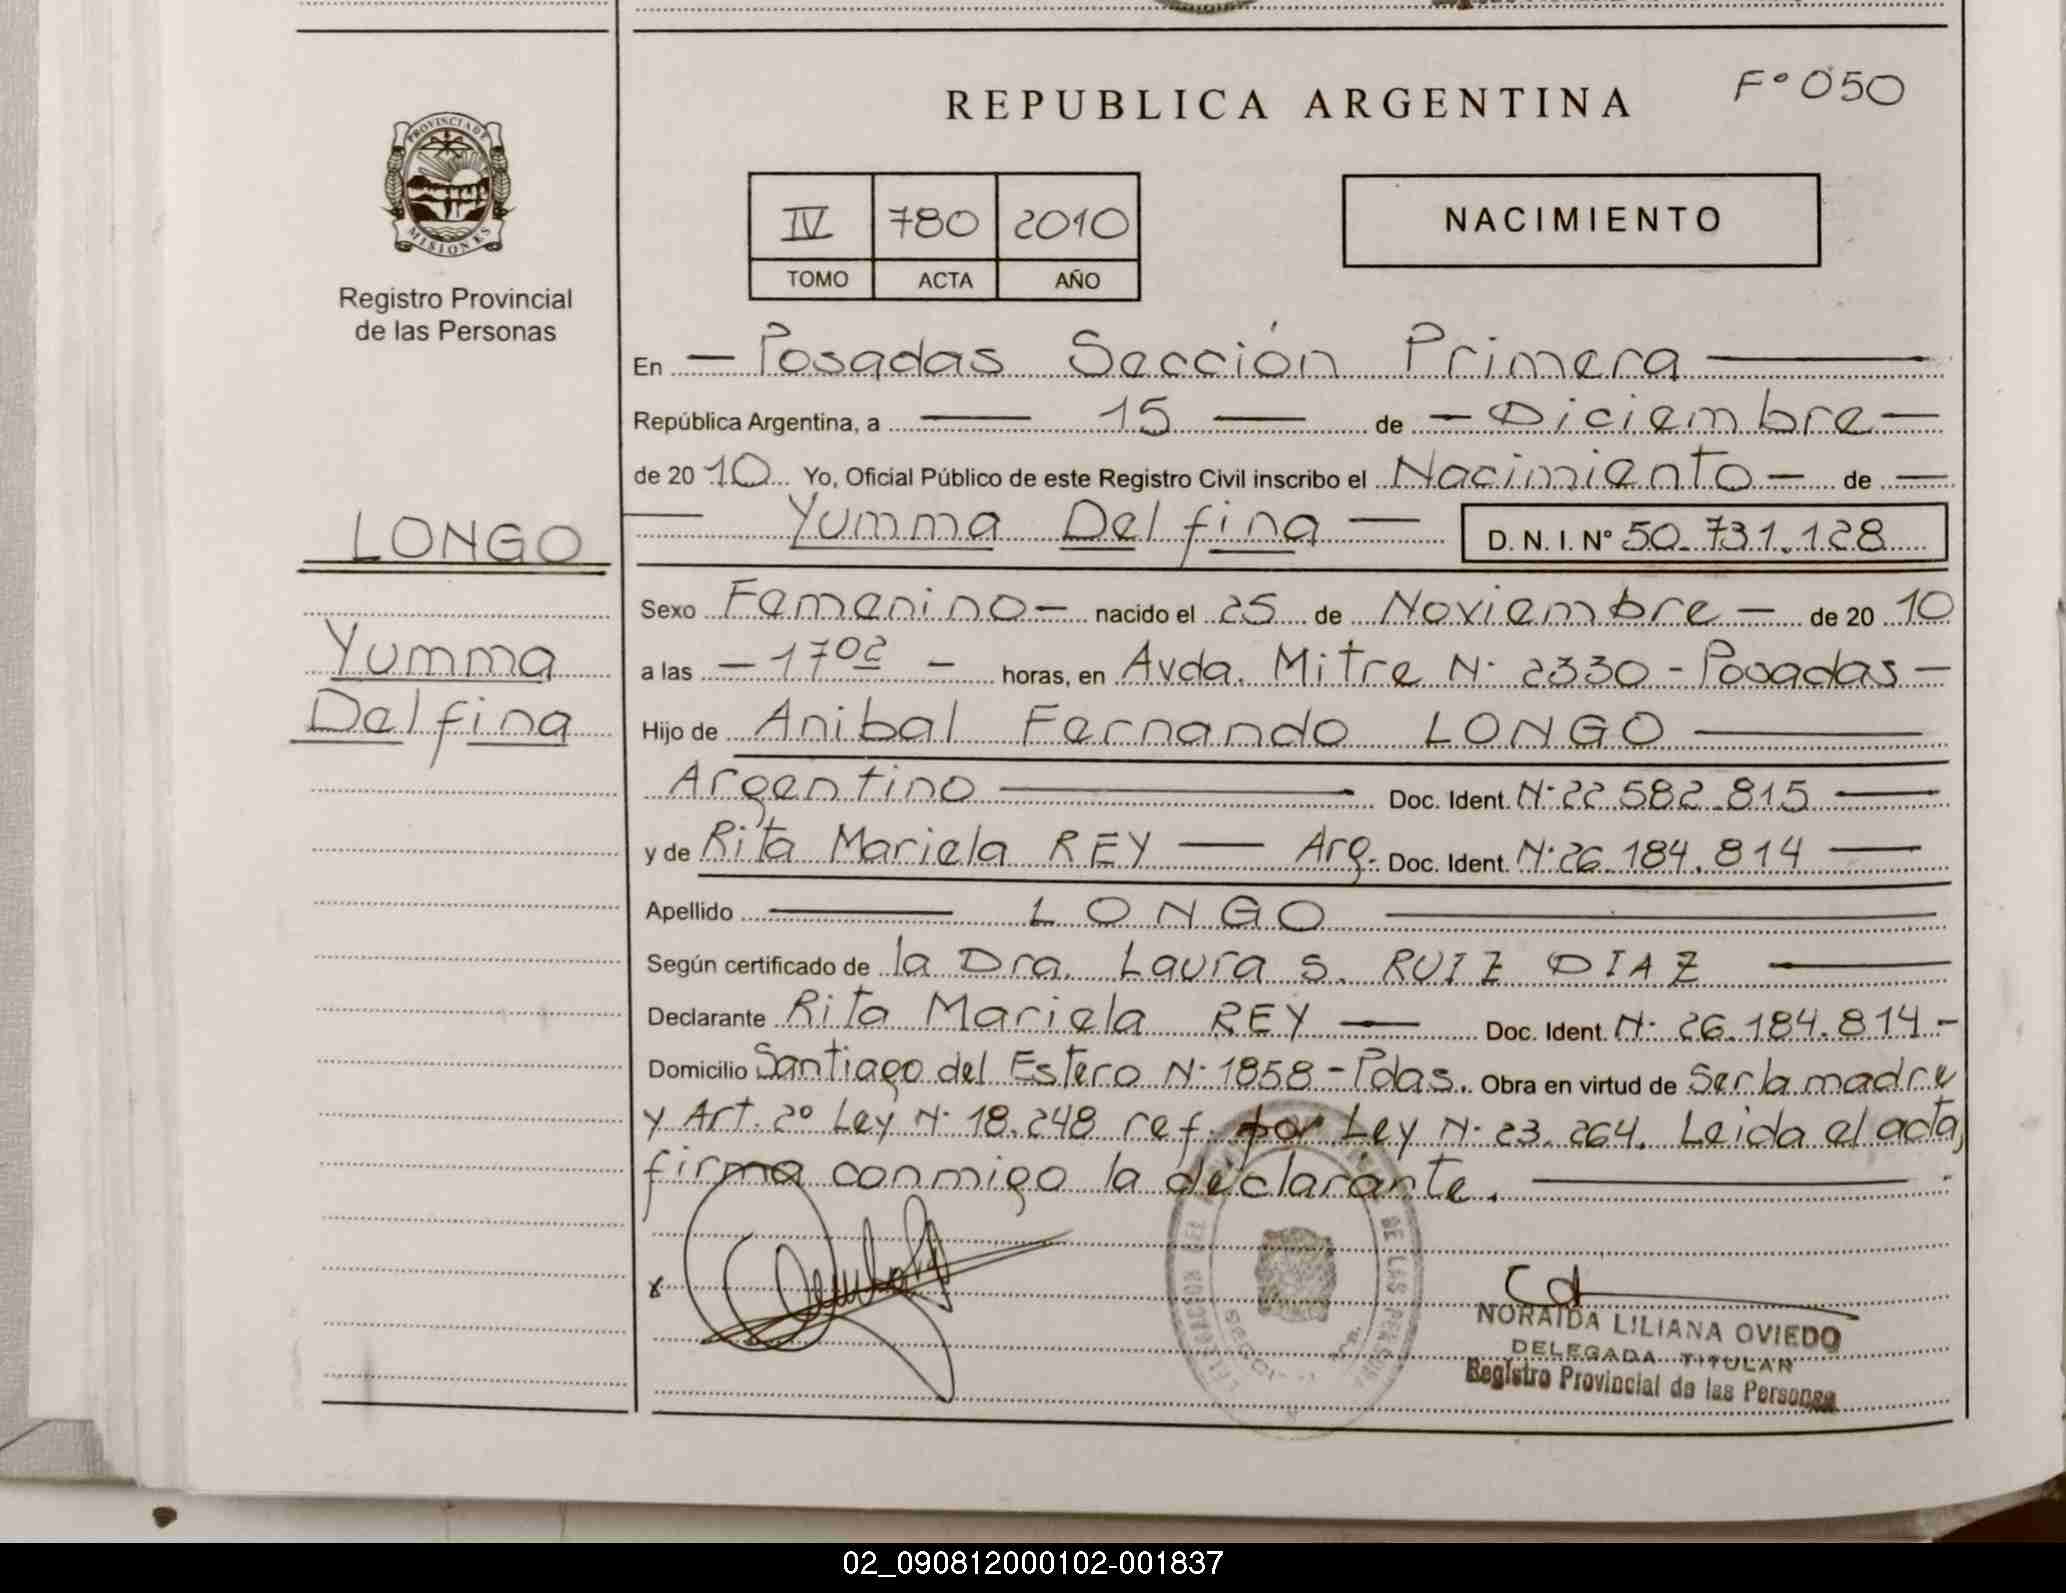 REPUBLICA ARGENTINA
Fº 050
PROVINCIA DE
MISIONES
Registro Provincial
de las Personas
IV 780 2010
TOMO ACTA AÑO
NACIMIENTO
En — Posadas Sección Primera —
República Argentina, a — 15 — de — Diciembre —
de 20 10 Yo, Oficial Público de este Registro Civil inscribo el Nacimiento — de —
— Yumma Delfina — D. N. I. Nº 50.731.128
LONGO
Yumma
Delfina
Sexo Femenino — nacido el 25 de Noviembre — de 20 10
a las — 17 02 — horas, en Avda. Mitre N· 2330 - Posadas —
Hijo de Anibal Fernando LONGO —
Argentino — Doc. Ident. N· 22.582.815 —
y de Rita Mariela REY — Arg. Doc. Ident. N· 26.184.814 —
Apellido — LONGO —
Según certificado de la Dra. Laura S. RUIZ DIAZ —
Declarante Rita Mariela REY — Doc. Ident. N· 26.184.814 -
Domicilio Santiago del Estero N· 1858 - Pdas. Obra en virtud de Ser la madre
y Art. 2º Ley N· 18.248 ref. por Ley N· 23.264. Leida el acta,
firma conmigo la declarante. —
x
NORAIDA LILIANA OVIEDO
DELEGADA TITULAR
Registro Provincial de las Personas
02_090812000102-001837